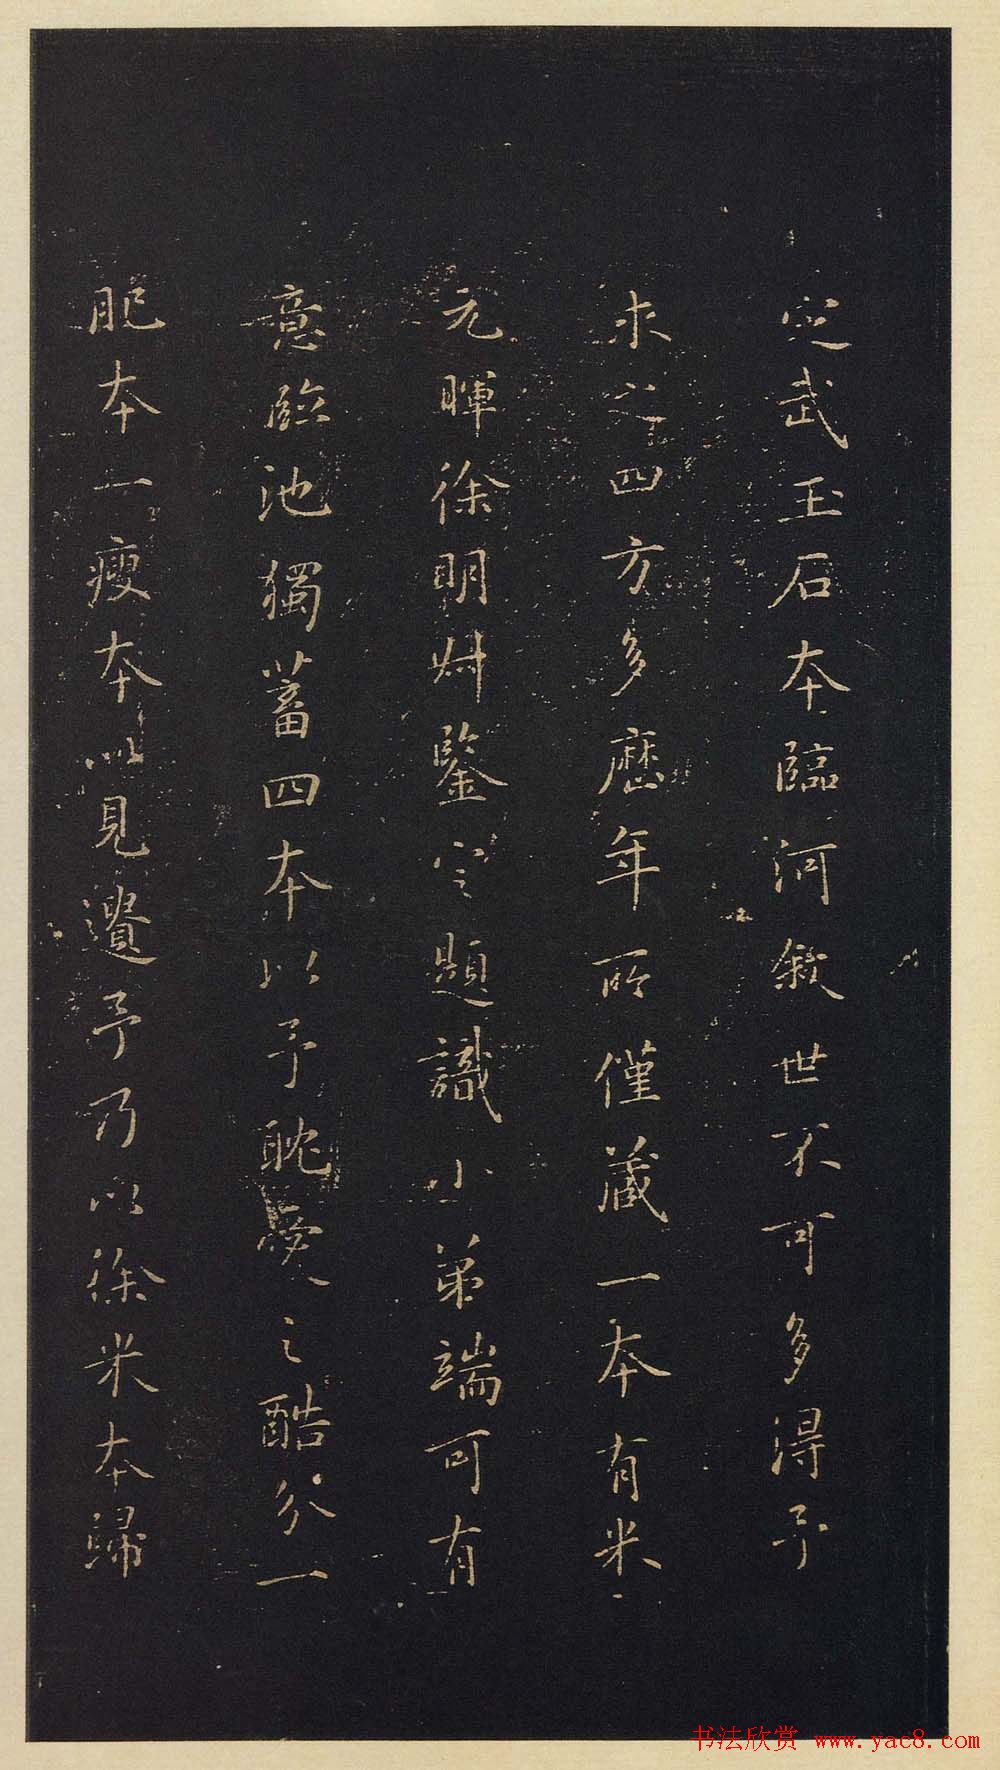 定武玉石本臨河敘世不可多得予
求之四方多歷年所僅藏一本有米
元暉徐明叔鑒定題識小弟端可有
意臨池獨蓄四本以予耽愛之酷分一
肥本一瘦本以見遺予乃以徐米本歸
书法欣赏 www.yac8.com